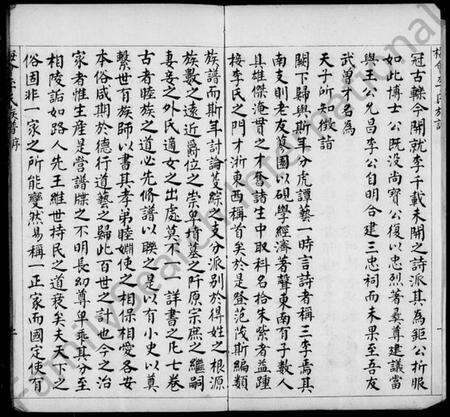 冠古轢今開就李千載未開之詩派其為鉅公折服
如此博士公既沒尚寶公復以忠烈著桑尊建議當
與王公允昌李公自明合建三忠祠而未果至吾友
武曾才名為
天子所知徵詣
闕下歸與斯年分虎譚藝一時言詩者稱三李焉其
南支則老友園以碩學經濟著聲東南有子數人
具雄傑之才登諸生中取科名拾朱紫者益踵
接李氏之門才浙東西稱首矣於是登范茂斯編類
族譜而斯年討論蒐綜之支分派別於得姓之根源
族數之遠近爵位之崇卑墳墓之阡原宗庶之繼嗣
妻妾之外氏適女之出處莫不一一詳書之凡七卷
古者睦族之道必先修譜以聯之是以有小史以奠
繫世百族師以書其孝弟睦婣使之相保相愛各安
本俗咸期於德行道藝之歸此百世之計也今之治
家者惟生產是營譜牒之不明長幼尊卑乖其分至
相陵詬如路人先王維世持民之道衰矣夫天下之
俗固非一家之所能變然易稱一正家而國定使有